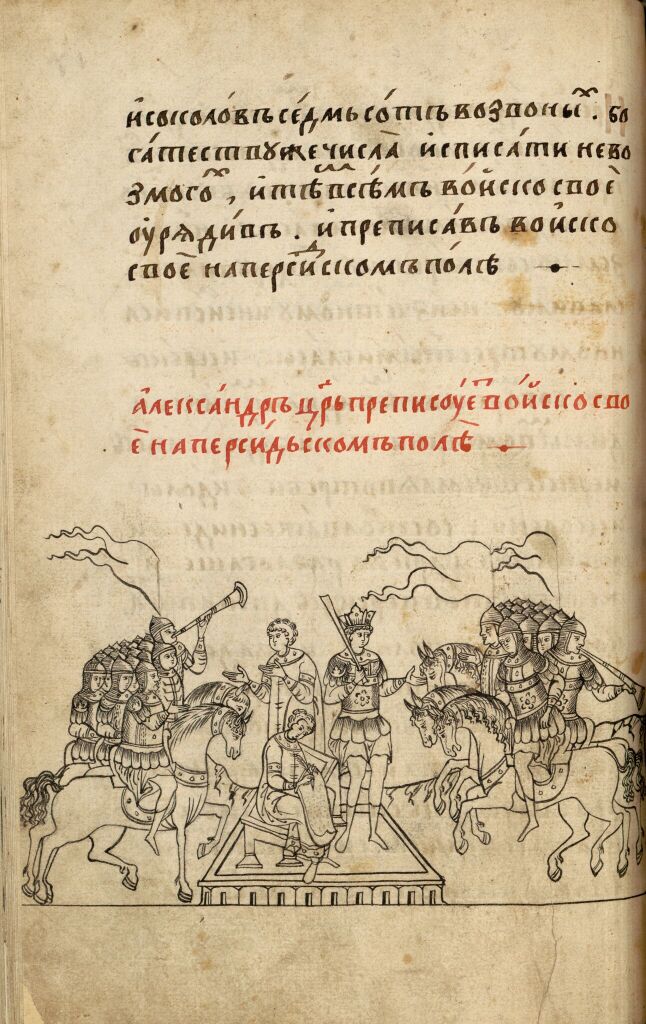 и҆соколо́въ се́дмь со́тъ возвоны̑х . бо
га́тества у҆же числа̀ и҆списа́ти нево
змого̑ , и҆ тꙋ̀ всѣ́мъ во́йско своѐ
оу҆ряди́въ . и҆ преписа́въ во́йско
своѐ на перси́дском полѣ̀
а҆леѯа́ндръ цр҃ь преписоуе́ во́йско сво
ѐ на перси́дьском полѣ̀